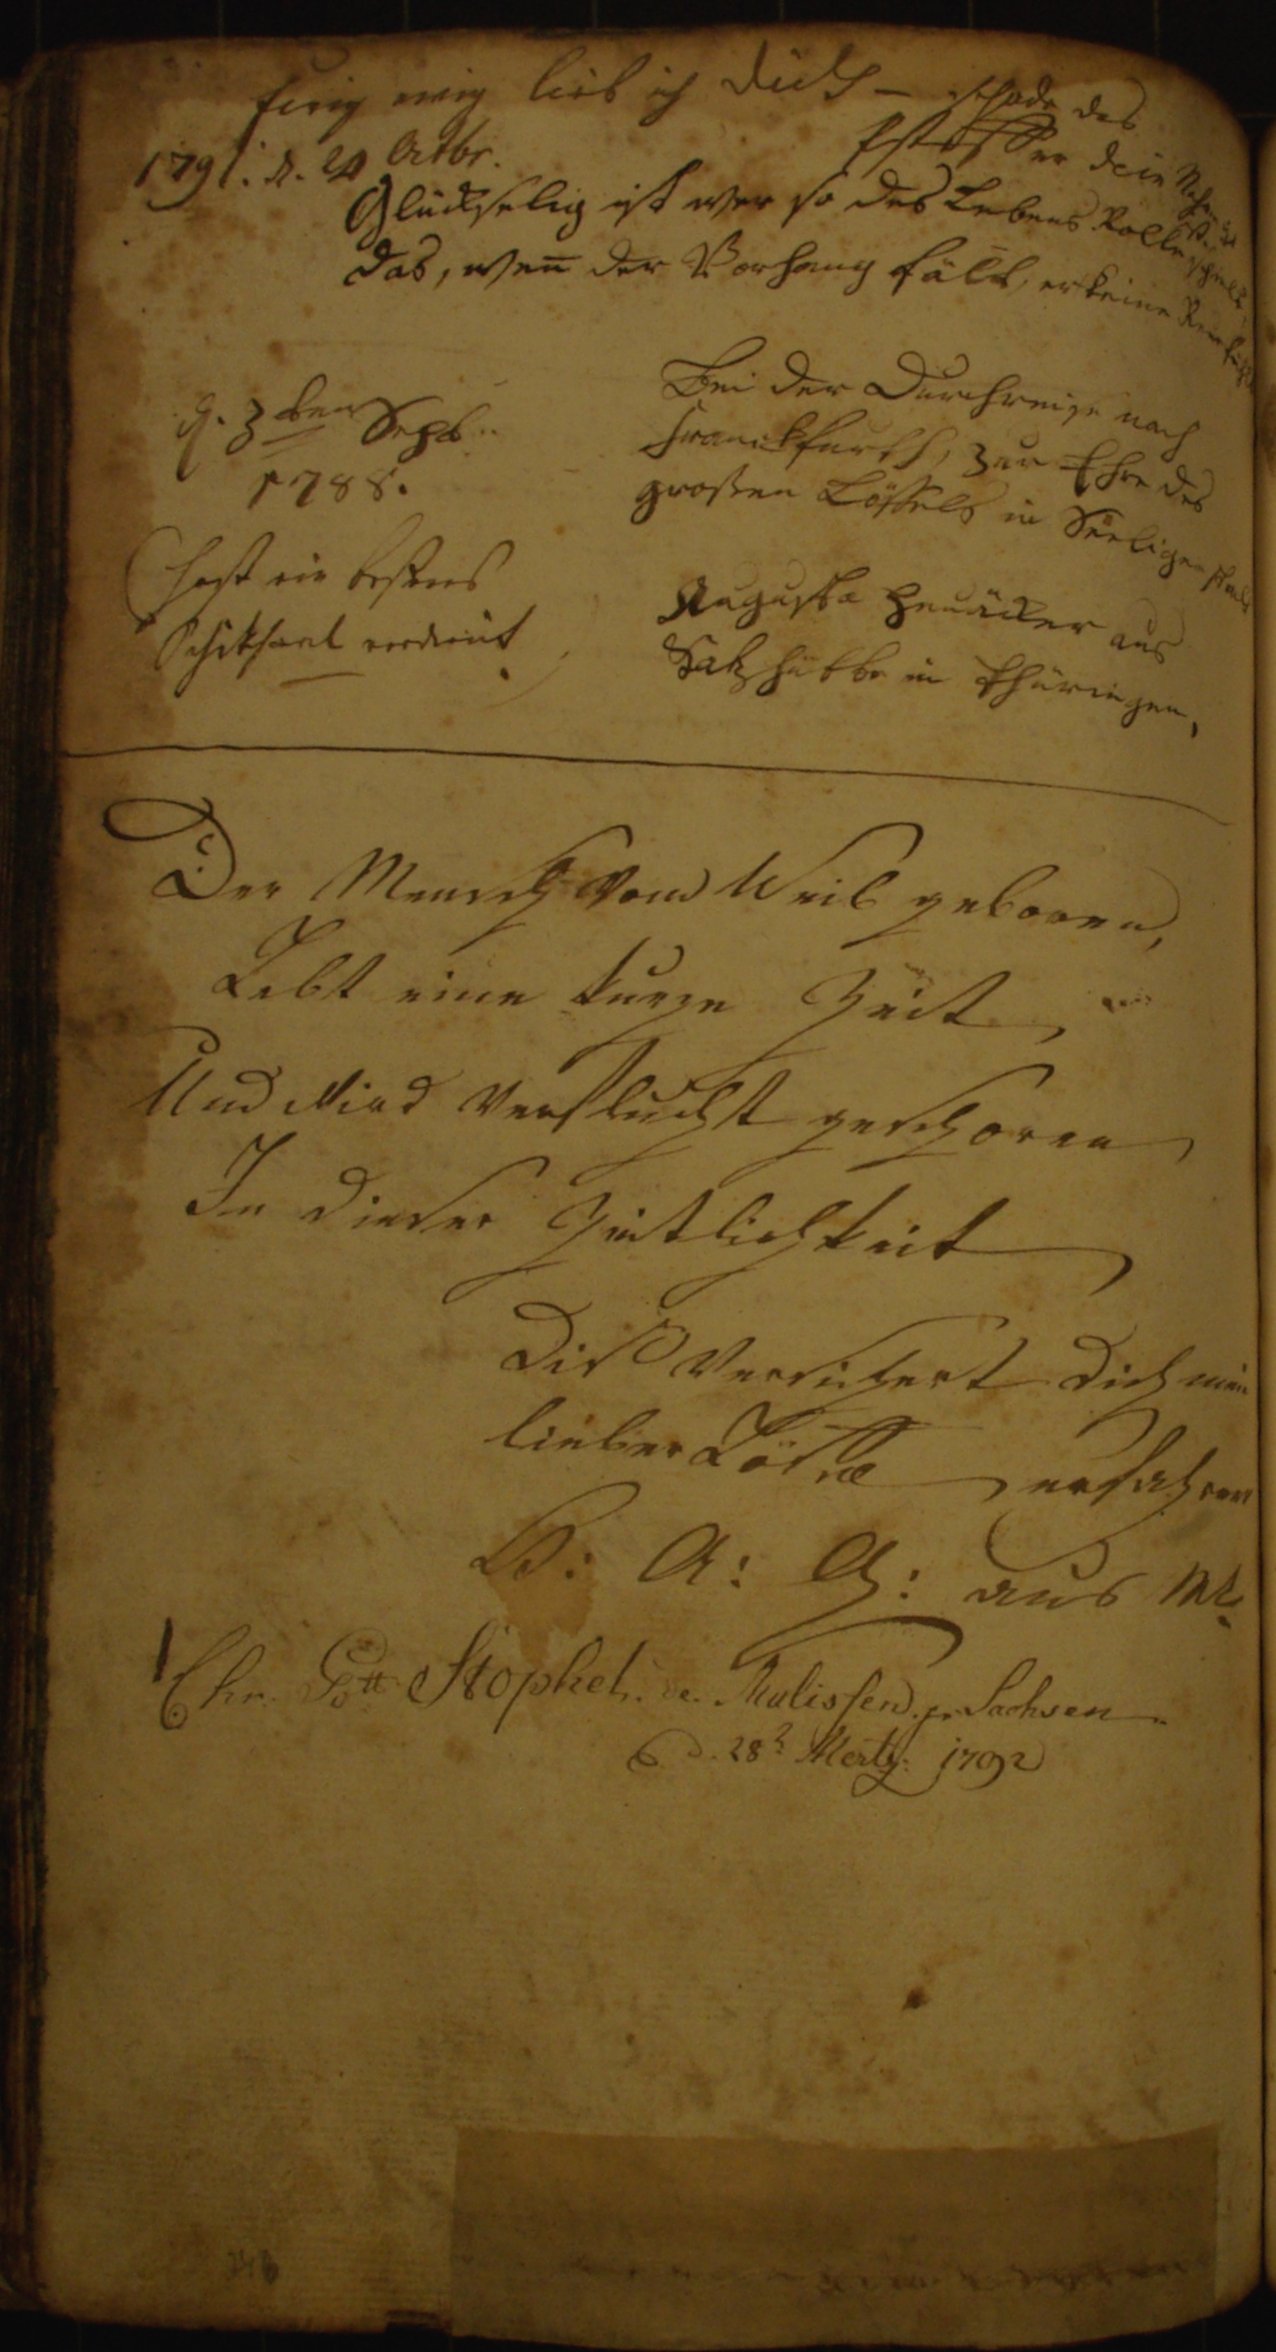 Ewig ewig lieb ich dich — schade das
1791. d. 20 Octbr.
dein
Glückselig ist wer so des Lebens Rolle spielt,
das, wen̄ der Vorhang fält, er keine Reu fühlt
d. 3ten Sept.
1788.
Bei der Durchreise nach
Franckfurth, zur Ehre des
großen Löffels in Seeligenstadt
(hast ein besseres
Schiksaal verdient.)
Augusta aus
in Thüringen,
Der Mensch vom Weib geboren,
Lebt eine kurze Zeit,
Und Wird Verflucht geschoren
In dieser Zeitlichkeit
Diß Versichert dich mein
lieber Löffel
B: A: G: aus
Chr. Gott. Stophel. de. Mulissen. p. Sachsen.
d. 28t Mertz: 1792